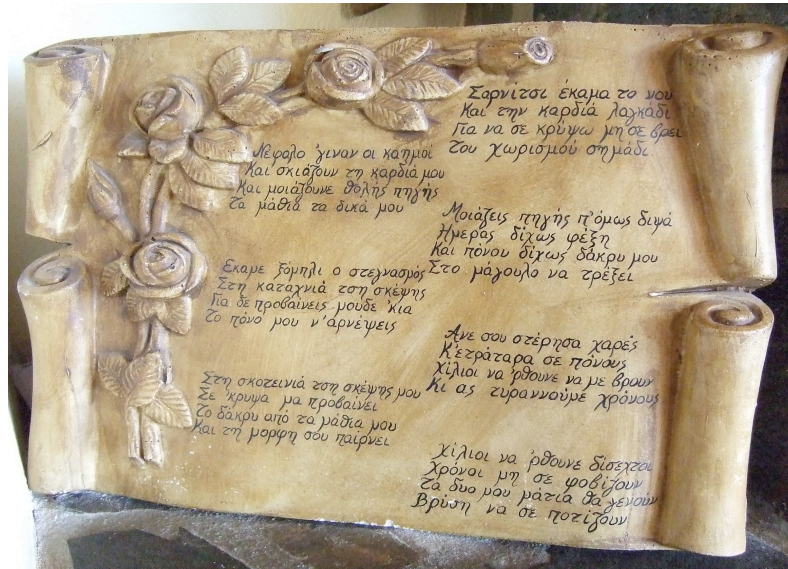 Νέφαλο 'γιναν οι καημοί
Και σκιάζουν τη καρδιά μου
Και μοιάζουνε θολής πηγής
Τα μάθια τα δικά μου
Έκαμε ξόμπλι ο στεγνασμός
Στη καταχνιά τση σκέψης
Για δε προβαίνεις μουδέ 'κια
Το πόνο μου ν' αρνέψεις
Στη σκοτεινιά τση σκέψης μου
Σε 'κρυψα μα προβαίνει
Το δάκρυ από τα μάθια μου
Και τη μορφη σου παίρνει
Σαρνίτσι έκαμα το νου
Και την καρδιά λαγκάδι
Για να σε κρύψω μη σε βρει
Του χωρισμού σημάδι
Μοιάζεις πηγής π' όμως διψά
Ημέρας δίχως φέξη
Και πόνου δίχως δάκρυ μου
Στο μάγουλο να τρέξει
Ανε σου στέρησα χαρές
Κ' ετράταρα σε πόνους
Χίλιοι να 'ρθουνε να με βρουν
Κι ας τυραννούμε χρόνους
Χίλιοι να 'ρθουνε δίσεχτοι
Χρόνοι μη σε φοβίζουν
Τα δυο μου μάτια θα γενούν
Βρύση να σε ποτίζουν